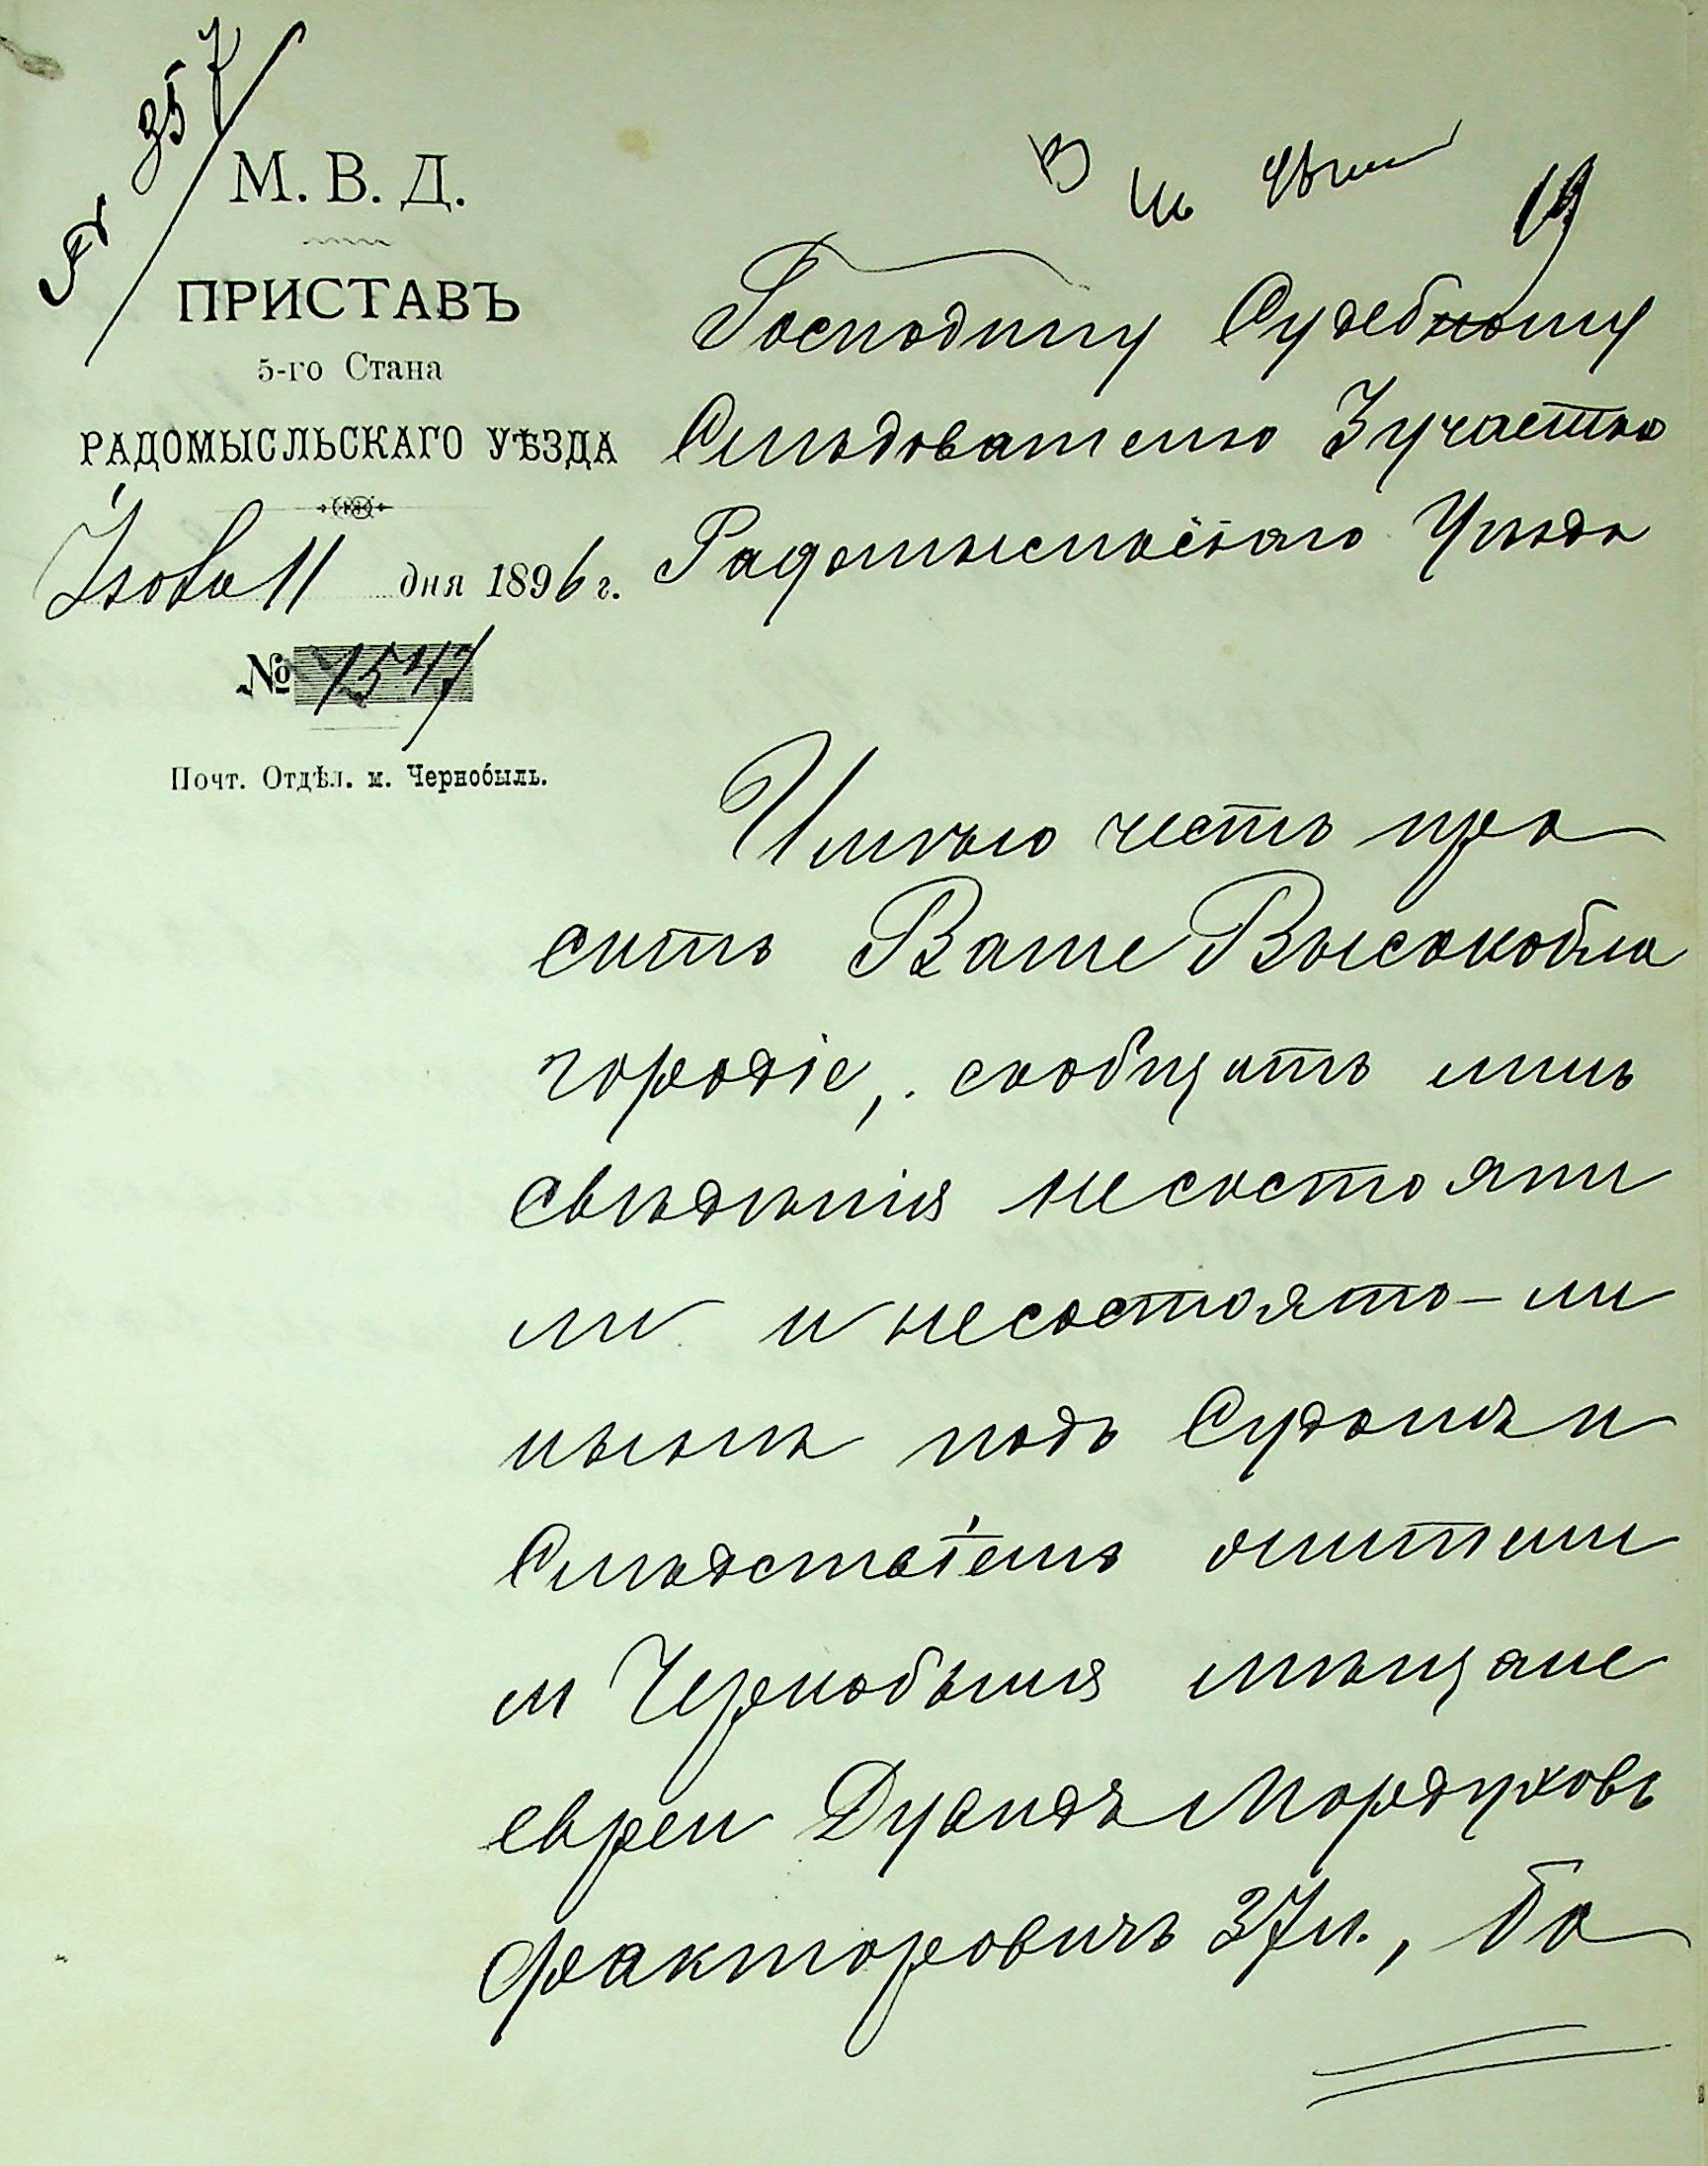 357
М. В. Д.
ПРИСТАВЪ
5-го Стана
РАДОМЫСЛЬСКАГО УѢЗДА
11 дня 1896 г.
№ 1547
Почт. Отдѣл. м. Чернобыль.
19
Господину Судебному
Слѣдователю 3 участка
Радомысльскаго Уѣзда
Имѣю честь про
сить Ваше Высокобла
городіе, сообщить мнѣ
свѣдѣнія несостояли
ли и несостоятъ-ли
нынѣ подъ Судомъ и
Слѣдствіемъ жители
м Чернобыля мѣщане
евреи Дувидъ Мордуховъ
Факторовичъ 37 л., Ба